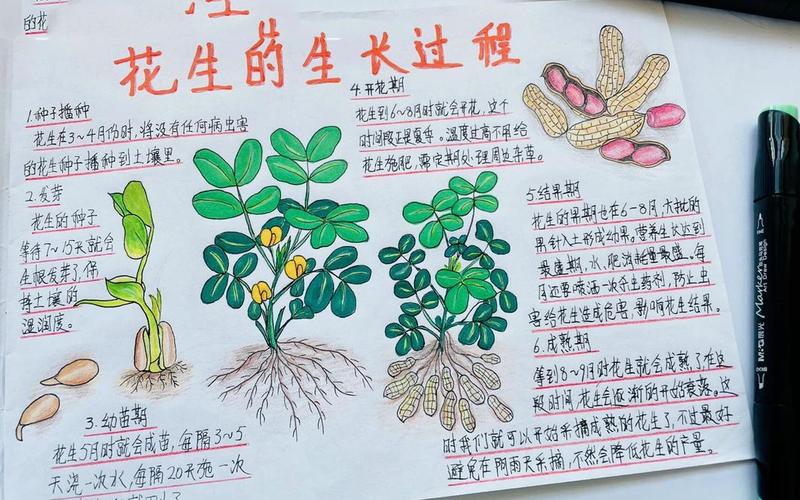 的花
花生的生长过程
1.种子播种
花生在3~4月份时,将没有任何病虫害
的花生种子播种到土壤里。
2.发芽
花生的种子
等待7~15天就会
生根发芽了,保
持土壤的
湿润度。
3.幼苗期
花生5月时就会成苗,每隔3~5
天浇一次水,每隔20天施一次
4.开花期
花生到6~8月时就会开花,这个
时间段正是夏季。温度过高不用给
花生施肥,需定期处理周边杂草。
5.结果期
花生的果期也在6-8月,大批的
果针入土形成幼果。营养生长达到
最盛期,水、肥消耗量最盛。每
月还要喷洒一次杀虫药剂,防止虫
害给花生造成危害,影响花生结果。
6.成熟期
等到8~9月时花生就会成熟了,在这
段时间,花生会逐渐的开始衰落。这
时我们就可以开始采摘成熟的花生了,不过最好
避免在阴雨天采摘,不然会降低花生的产量。
M&G晨光 Marker
Art Draw Design